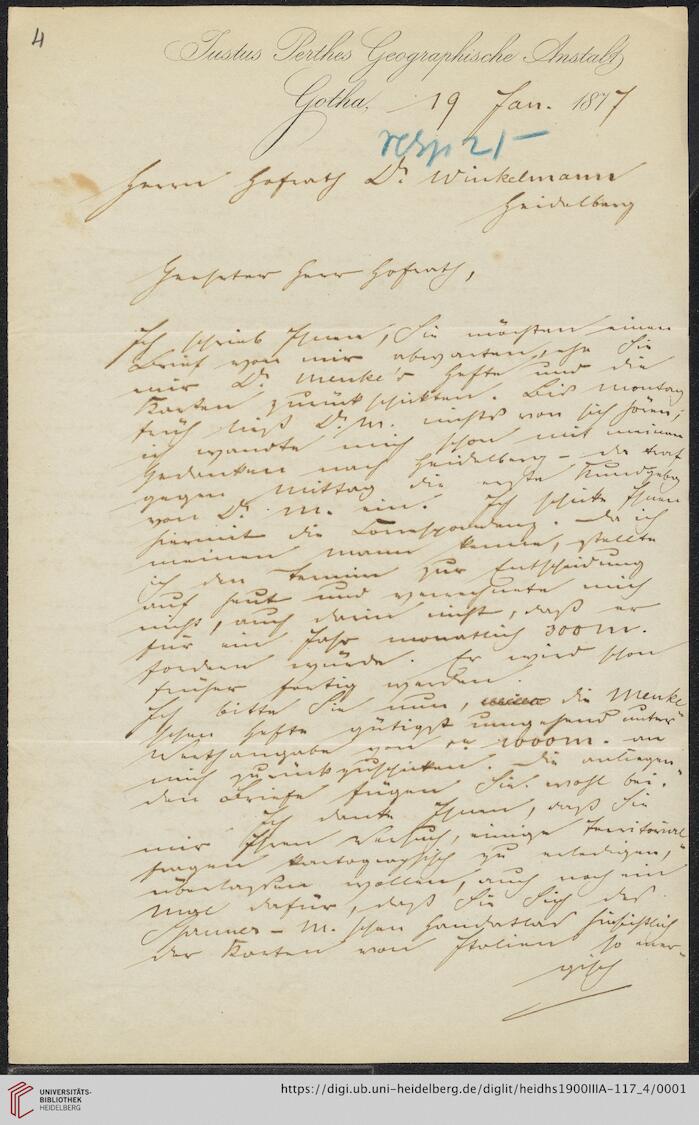 4
Justus Perthes Geographische Anstalt
Gotha, 19 Jan. 1877
resp 21
Herrn Hofrath Dr Winkelmann
Heidelberg
Geehrter Herr Hofrath,
Ich schrieb Ihnen, Sie möchten einen
Brief von mir abwarten, ehe Sie
mir Dr Menke's Hefte und die
Karten zurückschickten. Bis Montag
früh ließ Dr. M. nichts von sich hören;
ich wandte mich schon mit meinen
Gedanken nach Heidelberg - da trat
gegen Mittag die erste Kundgebg
von Dr. M. ein. Ich schicke Ihnen
hiermit die Correspondenz. Da ich
meinen Mann kenne, stellte
ich den Termin zur Entscheidung
auf heut und verrechnete mich
nicht, auch darin nicht, daß er
für ein Jahr monatlich 300 M.
fordern würde. Er wird schon
früher fertig werden.
Ich bitte Sie nun, die Menke
schen Hefte gütigst umgehend unter
Werthangabe von 1000 M. an
mich zurückzuschicken. Die anliegen
den Briefe fügen Sie wohl bei.
Ich danke Ihnen, daß Sie
mir Ihren Versuch, einige Territorial
fragen kartographisch zu erledigen,
überlassen wollen, auch noch ein
Mal dafür, daß Sie Sich des
Spruner-M.schen Handatlas hinsichtlich
der Karten von Italien so ener-
gisch
UNIVERSITÄTS-
BIBLIOTHEK
HEIDELBERG
https://digi.ub.uni-heidelberg.de/diglit/heidhs1900IIIA-117_4/0001